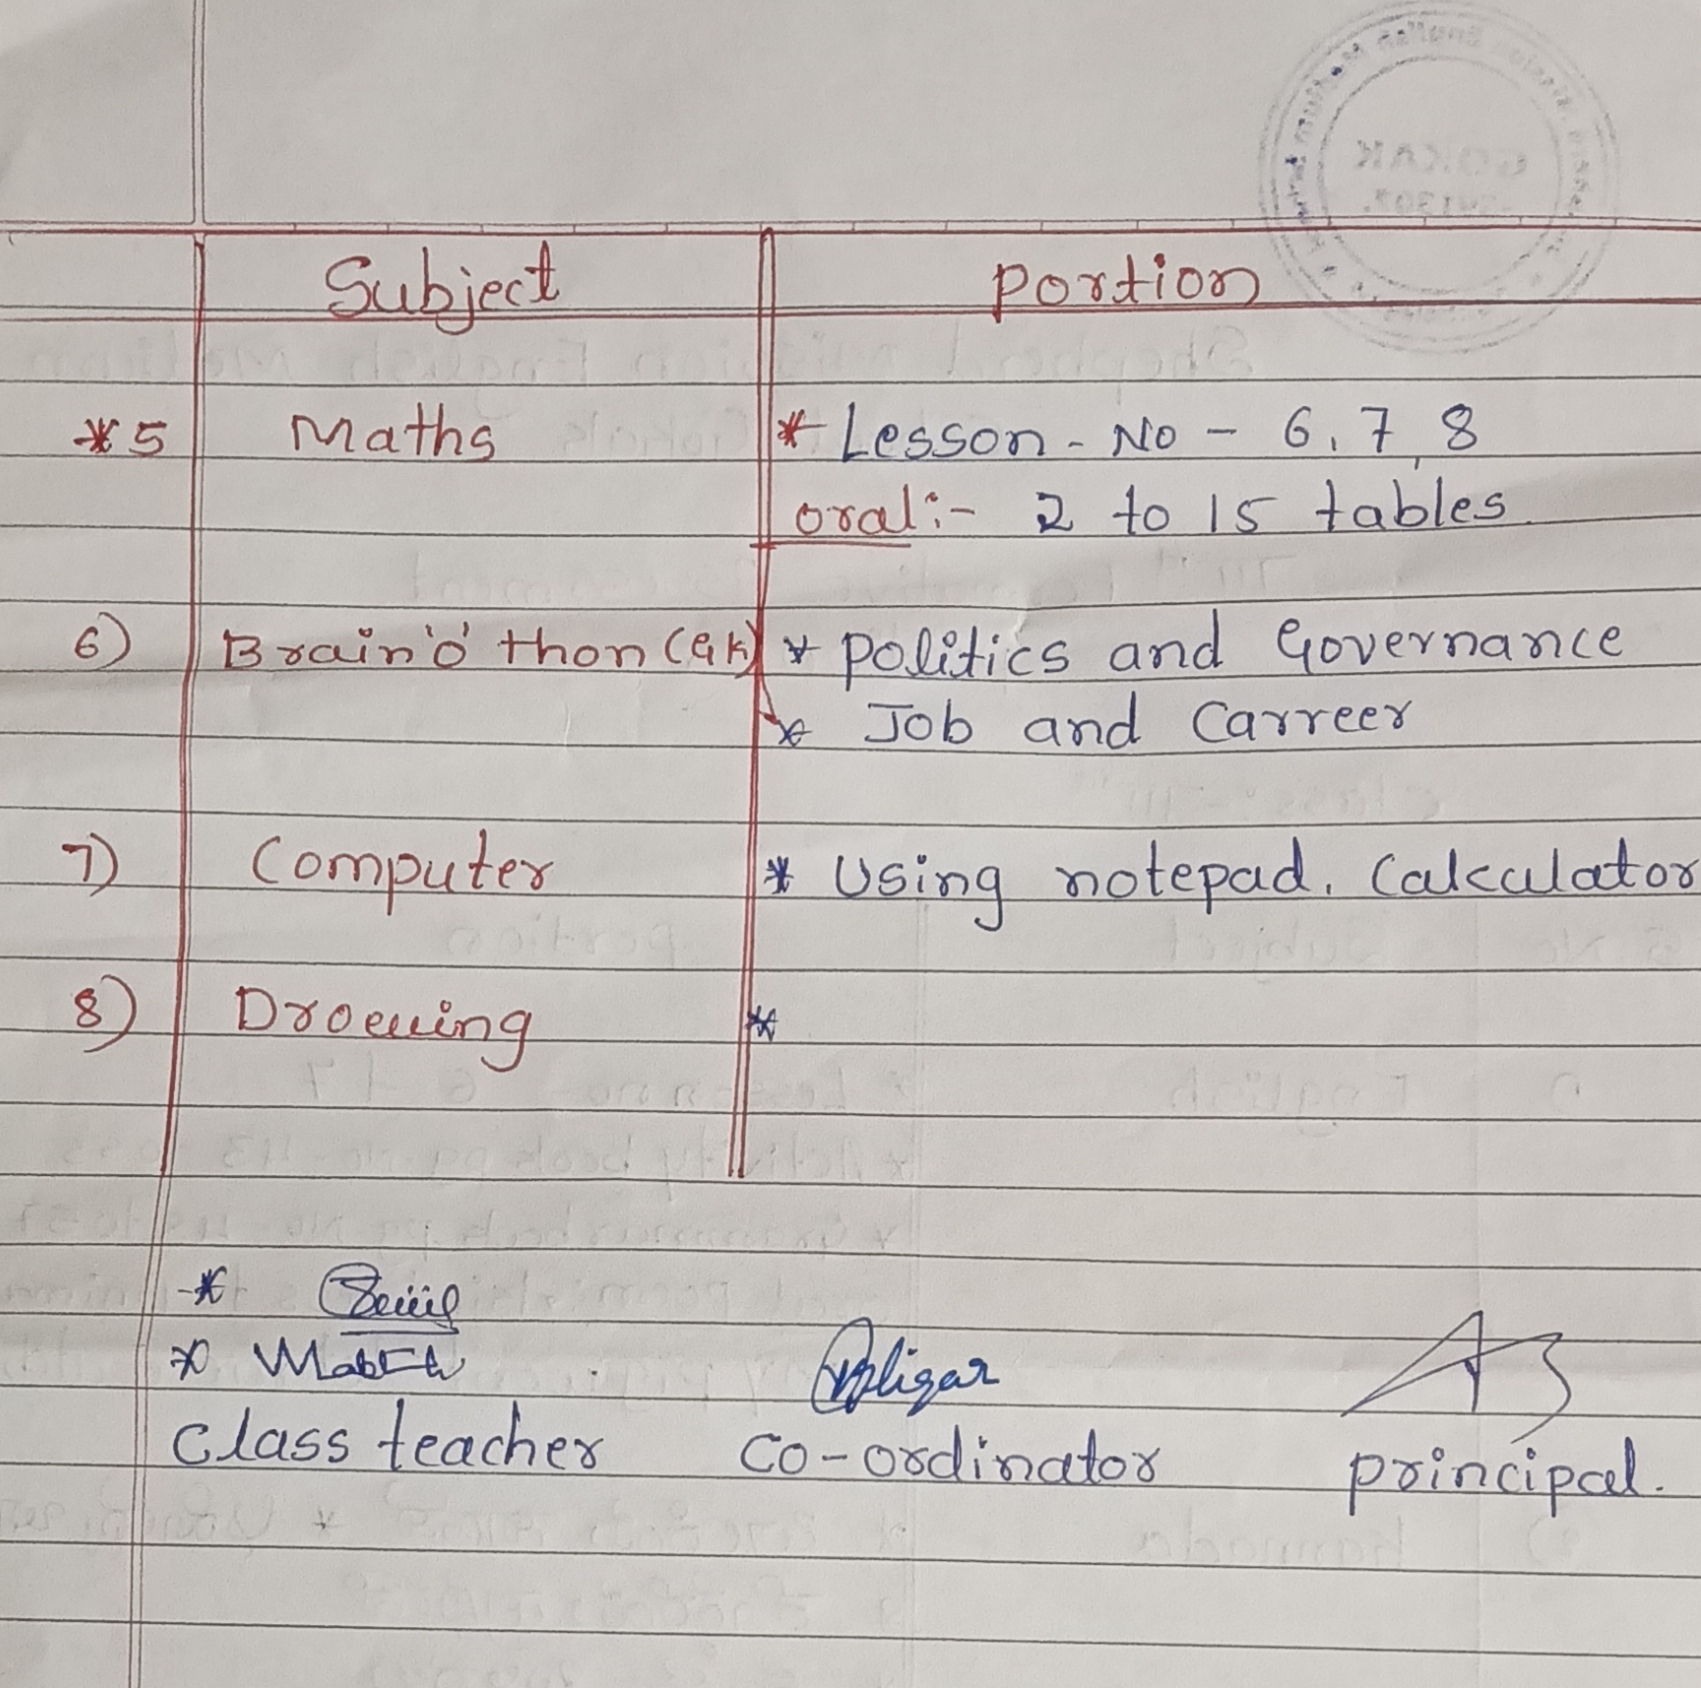 Subject portion
*5 Maths * Lesson - No - 6, 7, 8
oral :- 2 to 15 tables
6) Brain 'o' thon (GK) * Politics and Governance
* Job and Carreer
7) Computer * Using notepad, Calculator
8) Droewing *
*
*
class teacher co-ordinator principal.